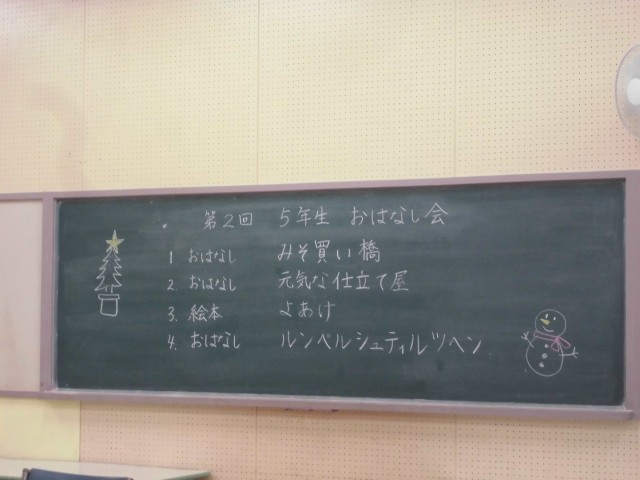 第2回 5年生 おはなし会
1 おはなし みそ買い橋
2. おはなし 元気な仕立て屋
3. 絵本 よあけ
4. おはなし ルンペルシュティルツヘン